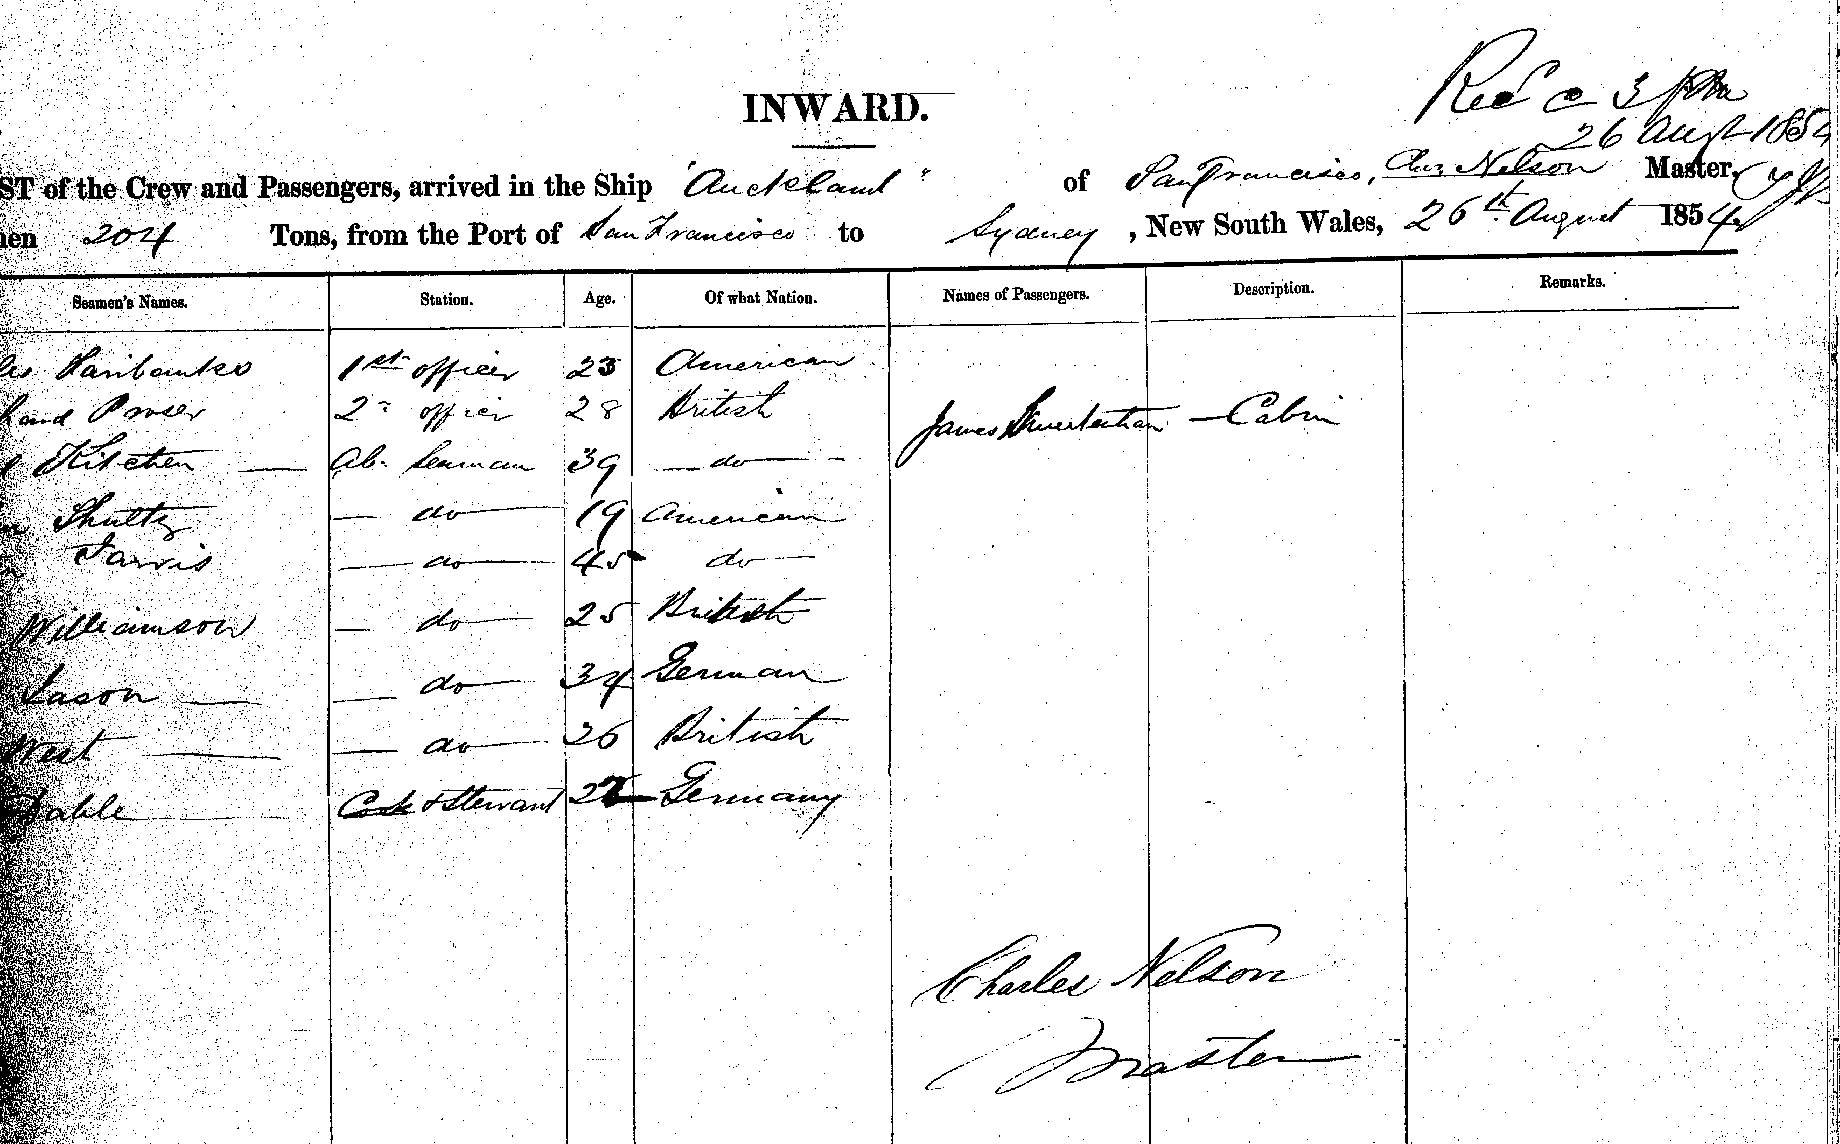 INWARD.
Recd @ 3 pm
26 Augt 1854
ST of the Crew and Passengers, arrived in the Ship "Auckland" of San Francisco, Chas Nelson Master,
men 204 Tons, from the Port of San Francisco to Sydney, New South Wales, 26th August 1854
Seamen's Names. Station. Age. Of what Nation. Names of Passengers. Description. Remarks.
les Fairbanks 1st officer 23 American
2nd officer 28 British James — Cabin
Kitchen — Ab. Seaman 39 — do —
Shultz — do — 19 American
Jarvis — do — 45 do —
Williamson — do — 25 British
Jason — — do — 34 German
West — — do — 26 British
Cook & Steward Germany
Charles Nelson
Master